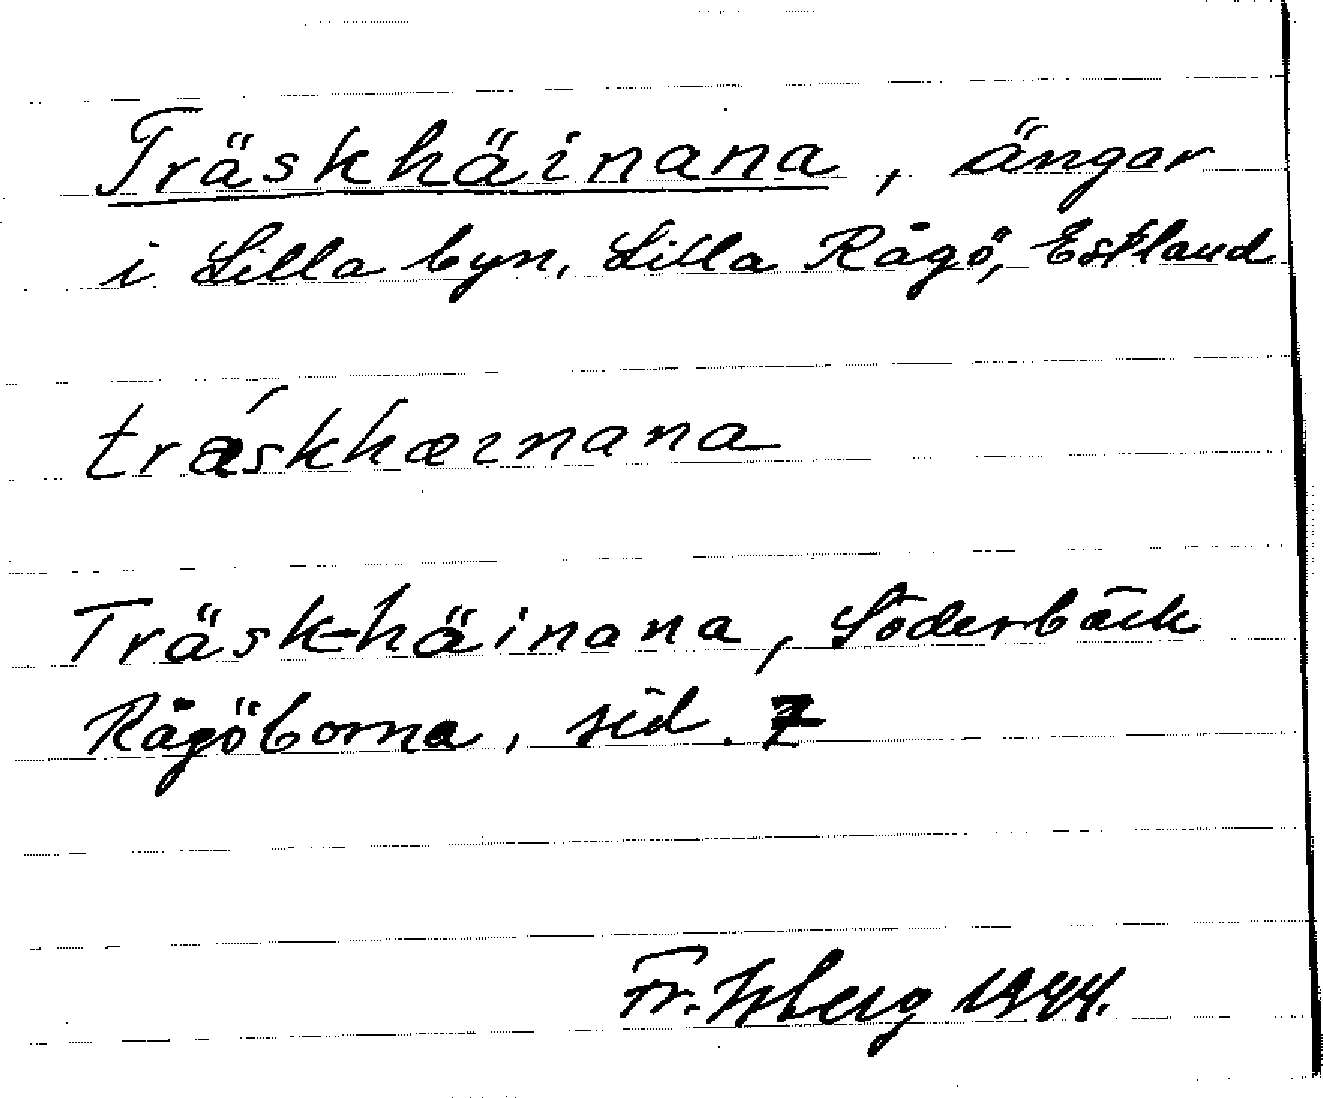 Träskhäinana, ängar
i Lilla byn, Lilla Rågö, Estland
trǽskhæınana
Träsk-häinana, Söderbäck
Rågöborna, sid. 7
Fr. 1944.